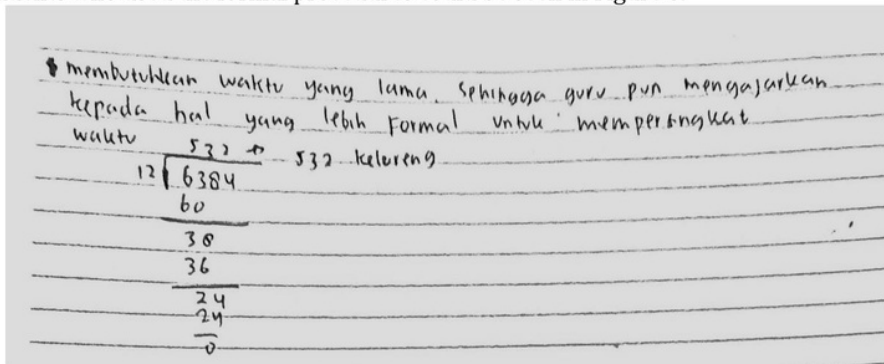 membutuhkan waktu yang lama. Sehingga guru pun mengajarkan
kepada hal yang lebih Formal untuk mempersingkat
waktu
532 → 532 kelereng
12 6384
60
38
36
24
24
0